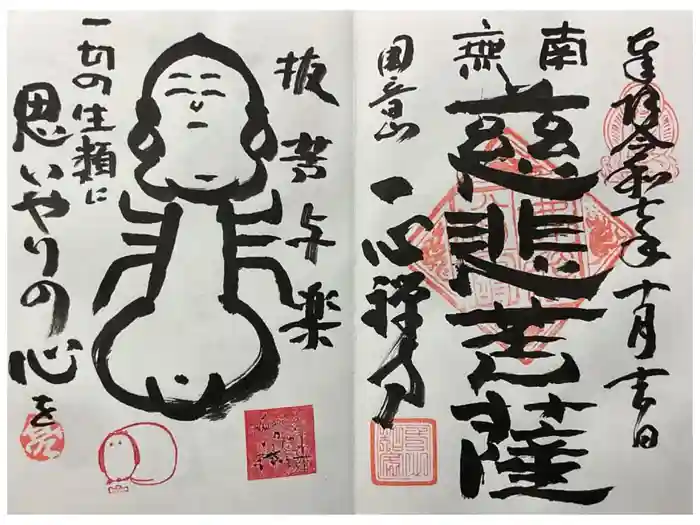 奉拝 令和七年 十月吉日
南無
慈悲菩薩
一心禅寺
抜苦与楽
一切の生類に
思いやりの心を